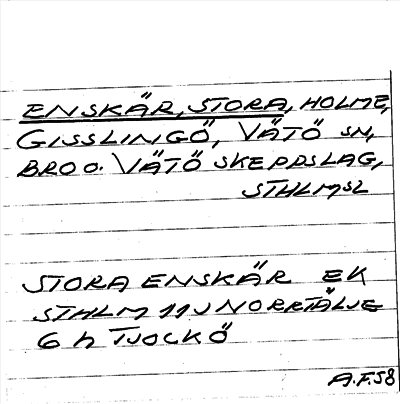 ENSKÄR, STORA, HOLME,
GISSLINGÖ, VÄTÖ SN,
BRO O. VÄTÖ SKEPPSLAG,
STHLMSL
STORA ENSKÄR EK
STHLM 11J NORRTÄLJE
6 h TJOCKÖ
A.F. 58